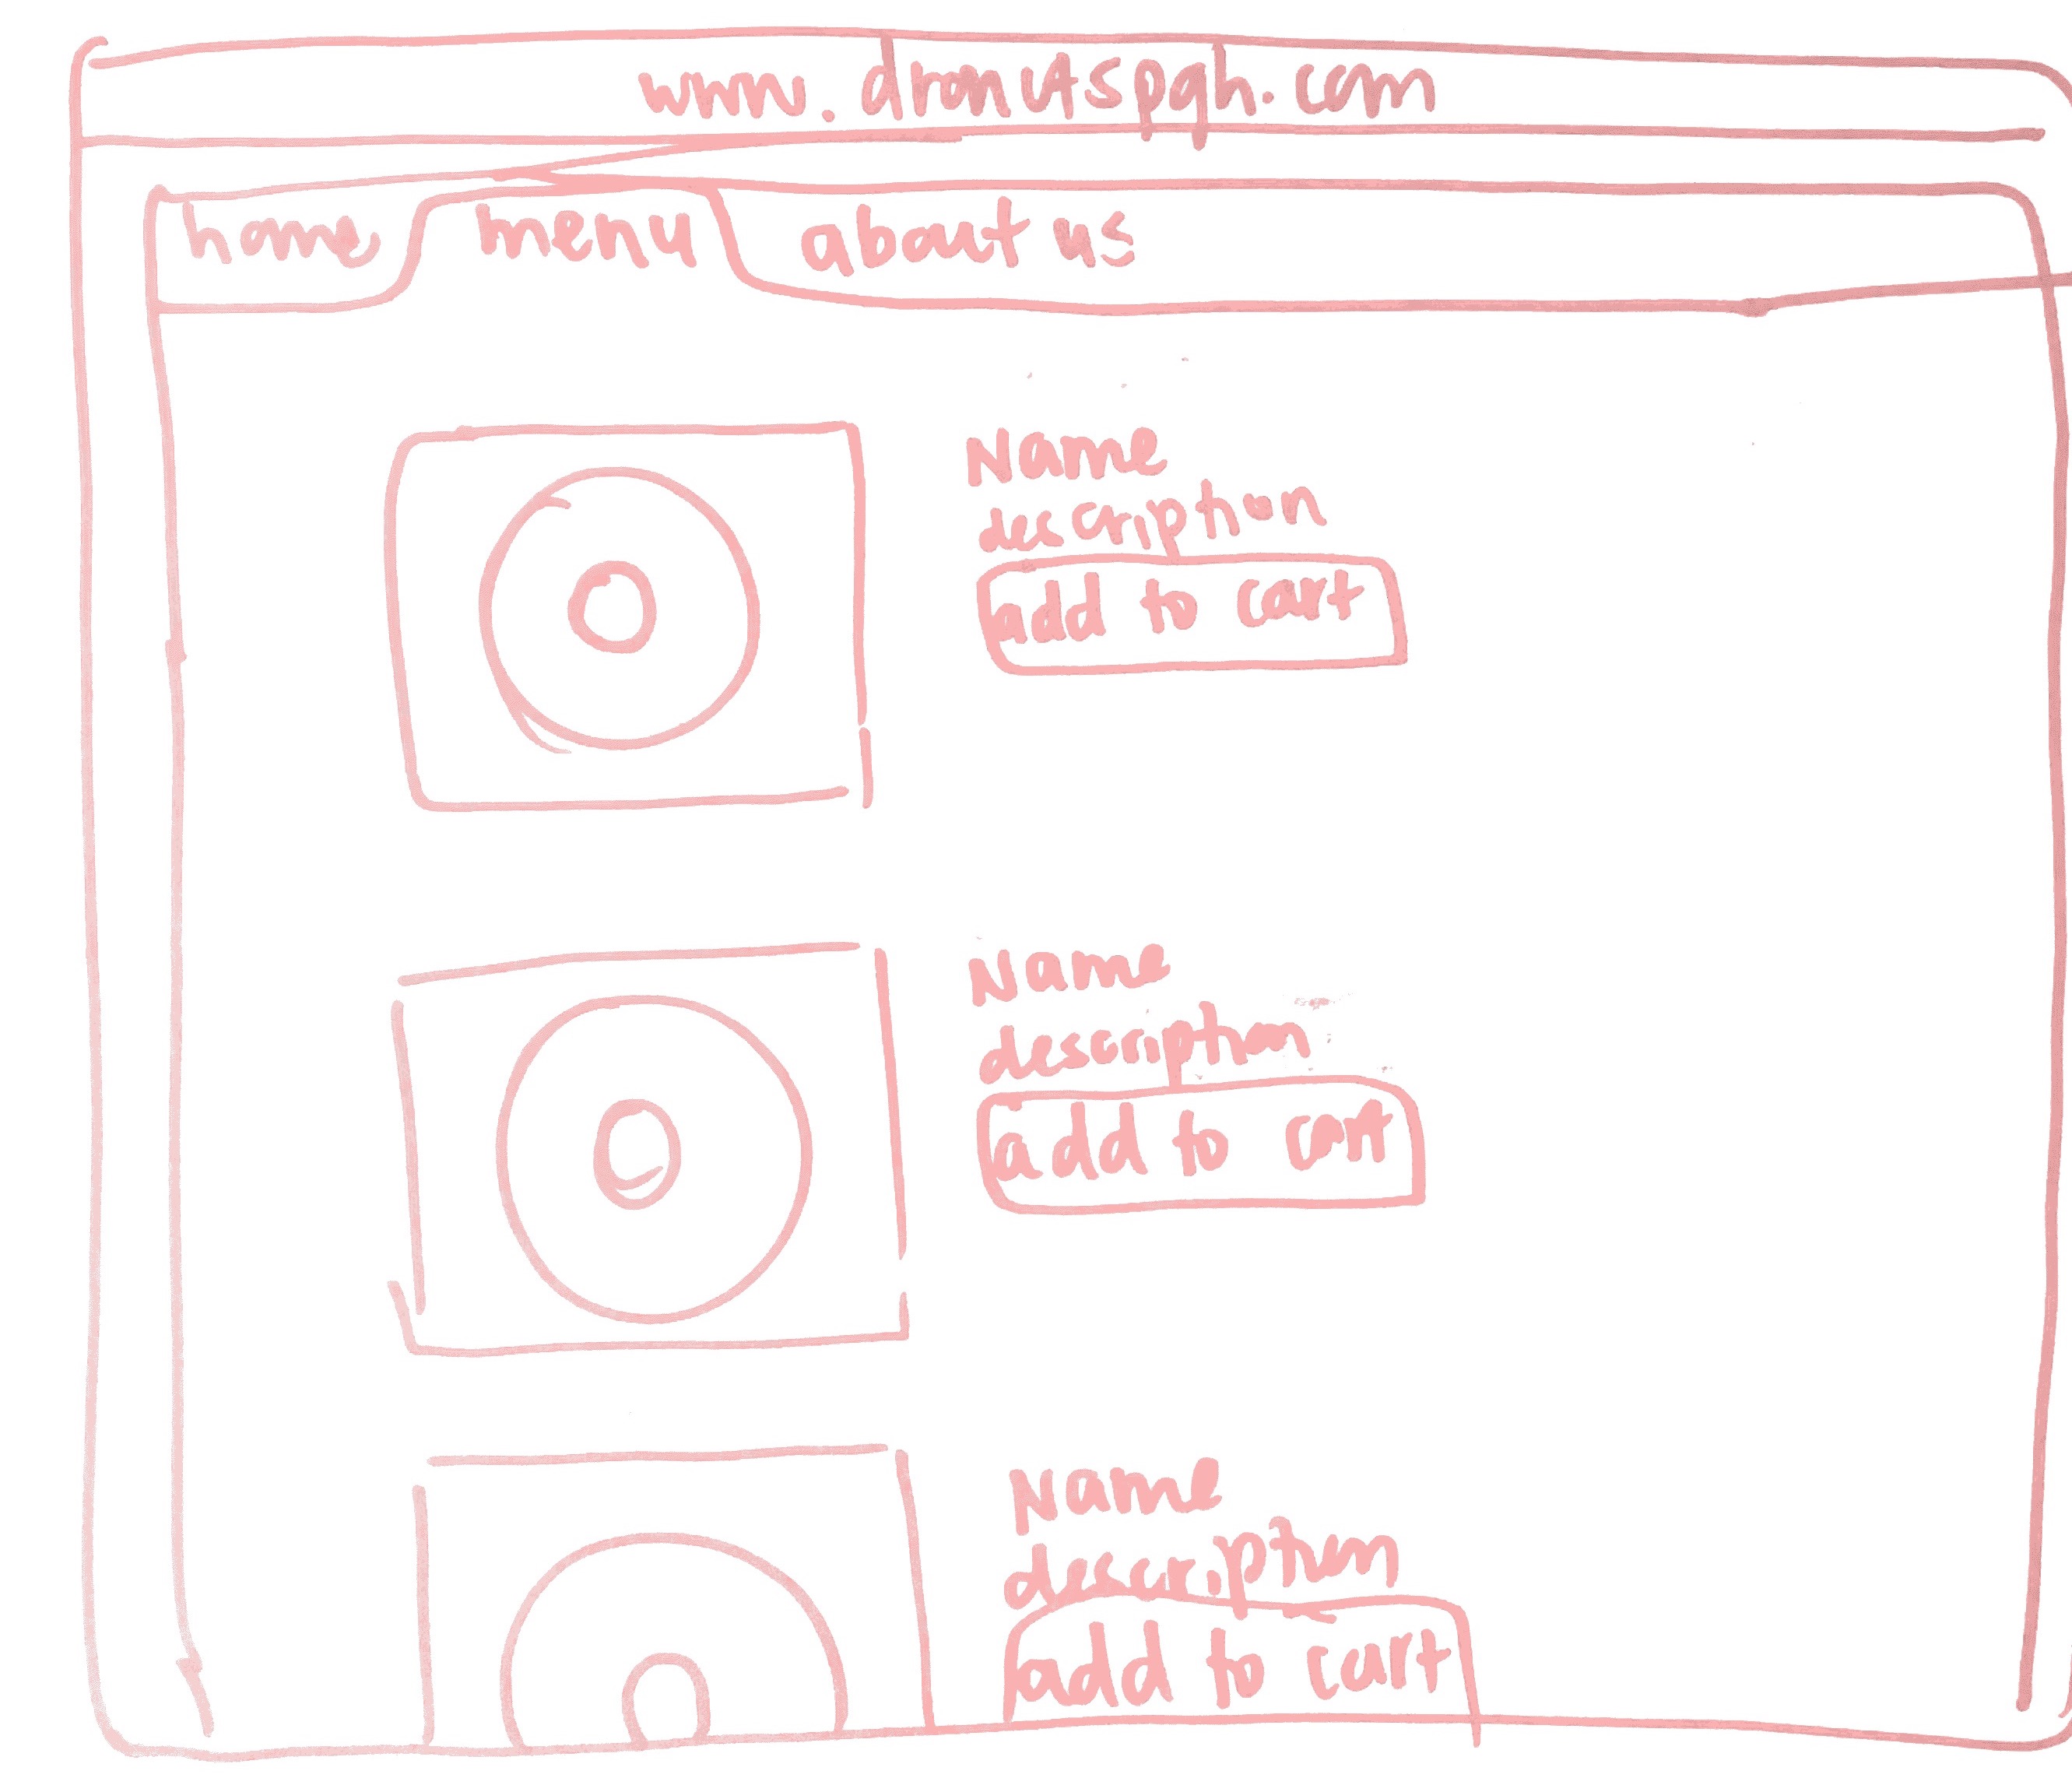 www.dronutspgh.com
home menu about us
Name
description
add to cart
Name
description
add to cart
Name
description
add to cart